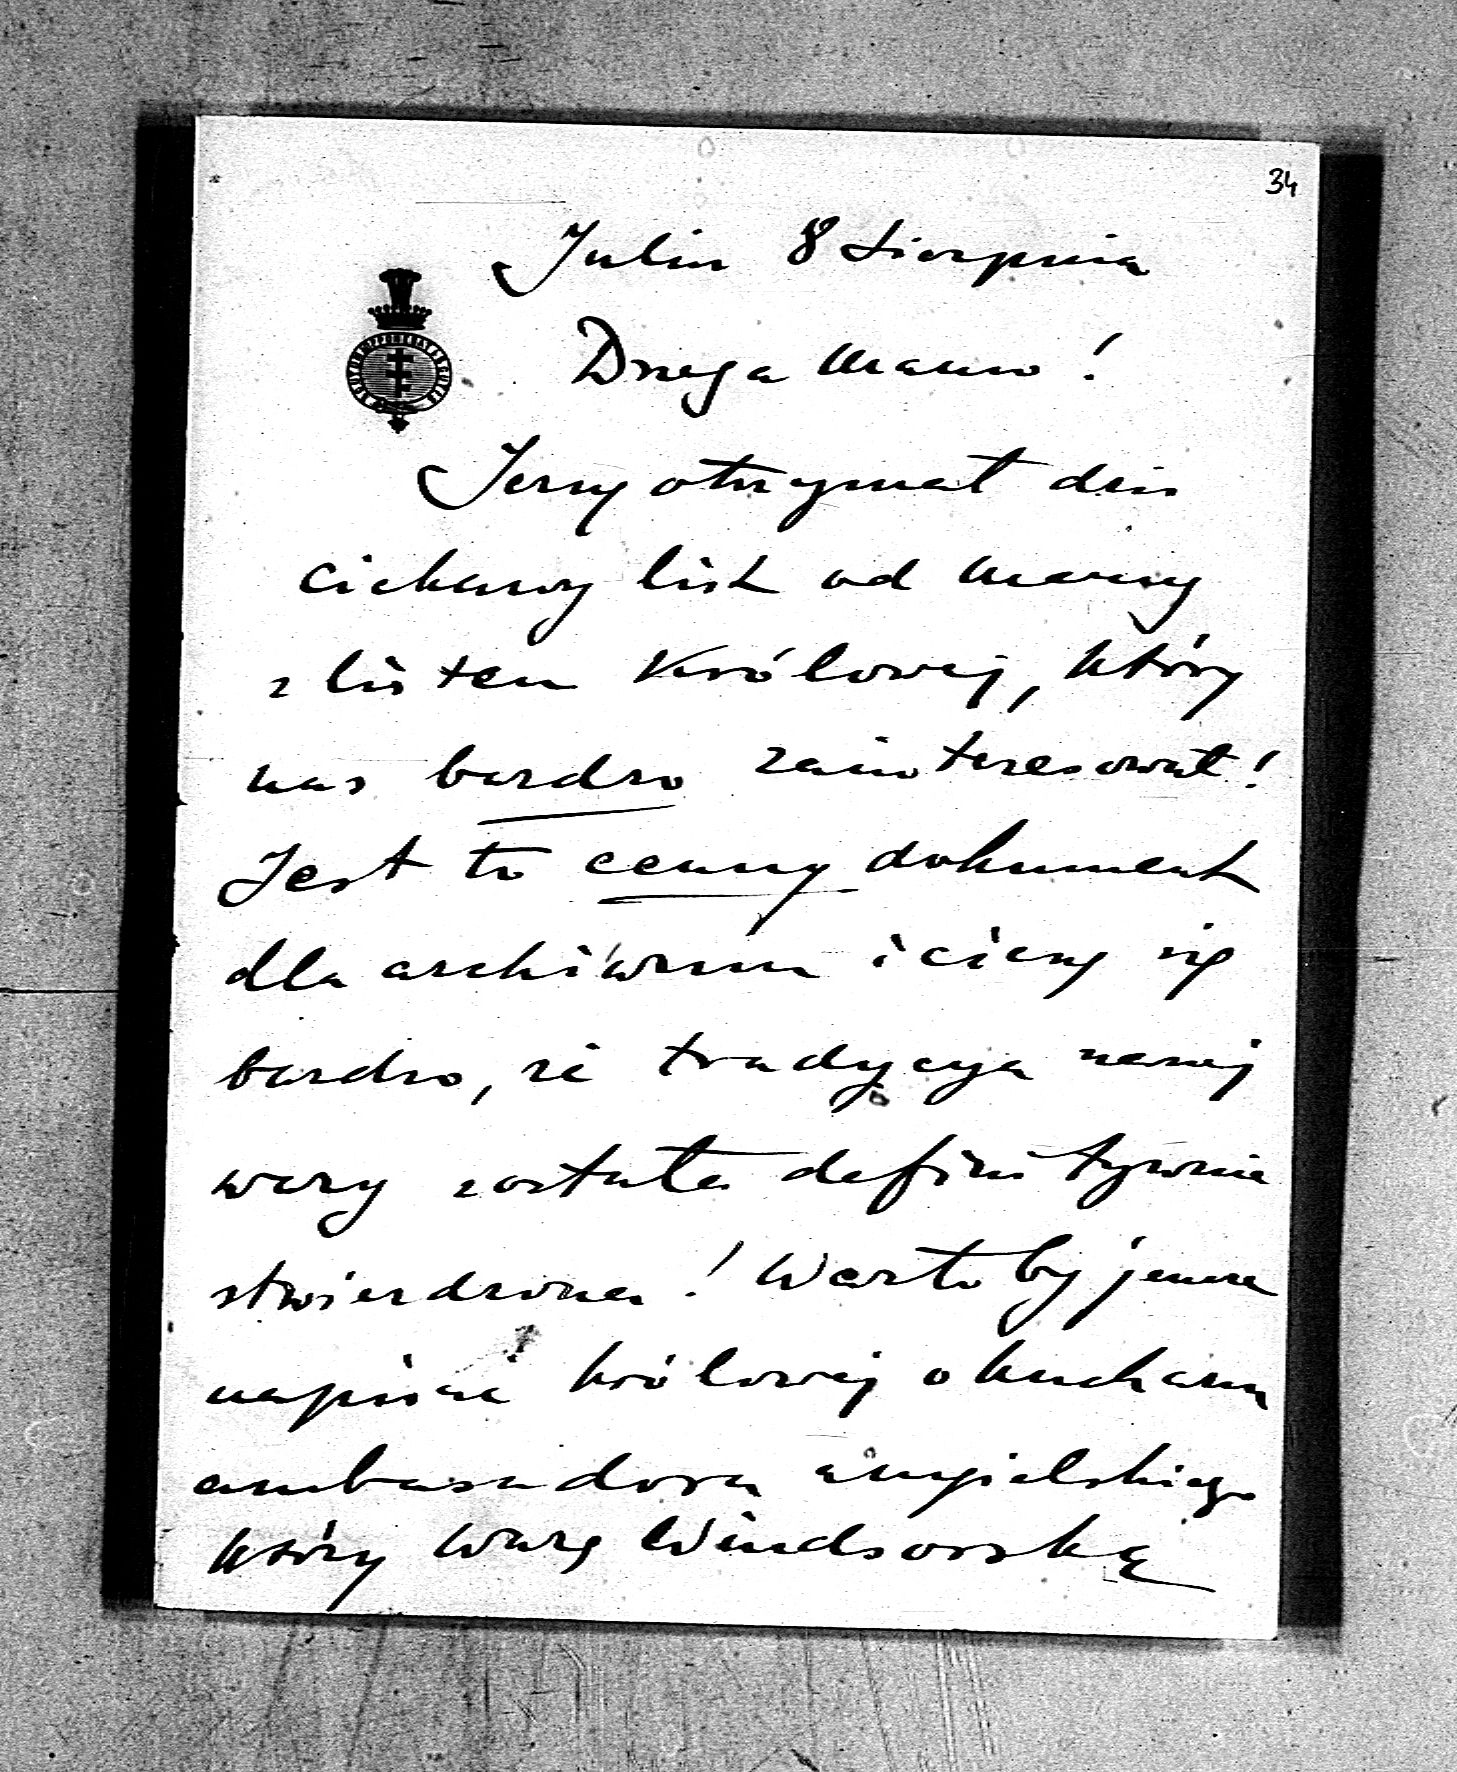 34
Julin 8 Sierpnia
Droga Mamo!
Jerzy otrzymał dziś
ciekawy list od Mamy
z listem Królowej, który
nas bardzo zainteresował!
Jest to cenny dokument
dla archiwum i cieszę się
bardzo, że tradycya naszej
wazy została definitywnie
stwierdzona! Warto by jeszcze
napisać królowej o kucharzu
ambasadora angielskiego
który wazę Windsorską